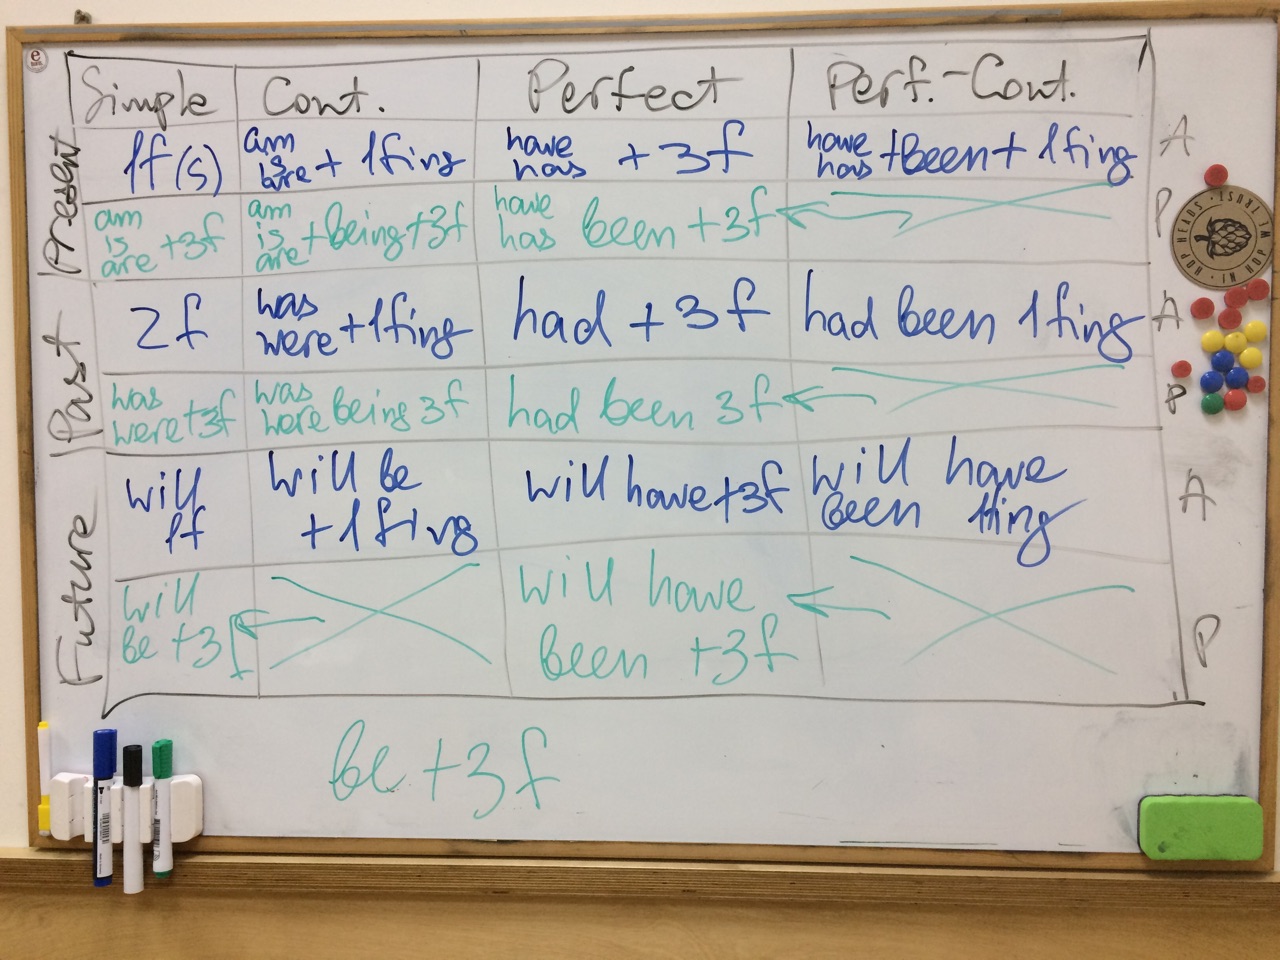 Simple Cont. Perfect Perf.-Cont.
Present
1f(s)
am
is
are + 1f ing
have
has + 3f
have
has +been+ 1f ing
A
am
is
are +3f
am
is
are +being+3f
have
has been +3f
P
Past
2f
was
were +1f ing
had + 3f
had been 1f ing
A
was
were +3f
was
were being 3f
had been 3f
P
Future
will
1f
will be
+1f ing
will have+3f
will have
been 1f ing
A
will
be +3f
will have
been +3f
P
be +3f
e
HOP HEADS · IN HOP WE TRUST ·